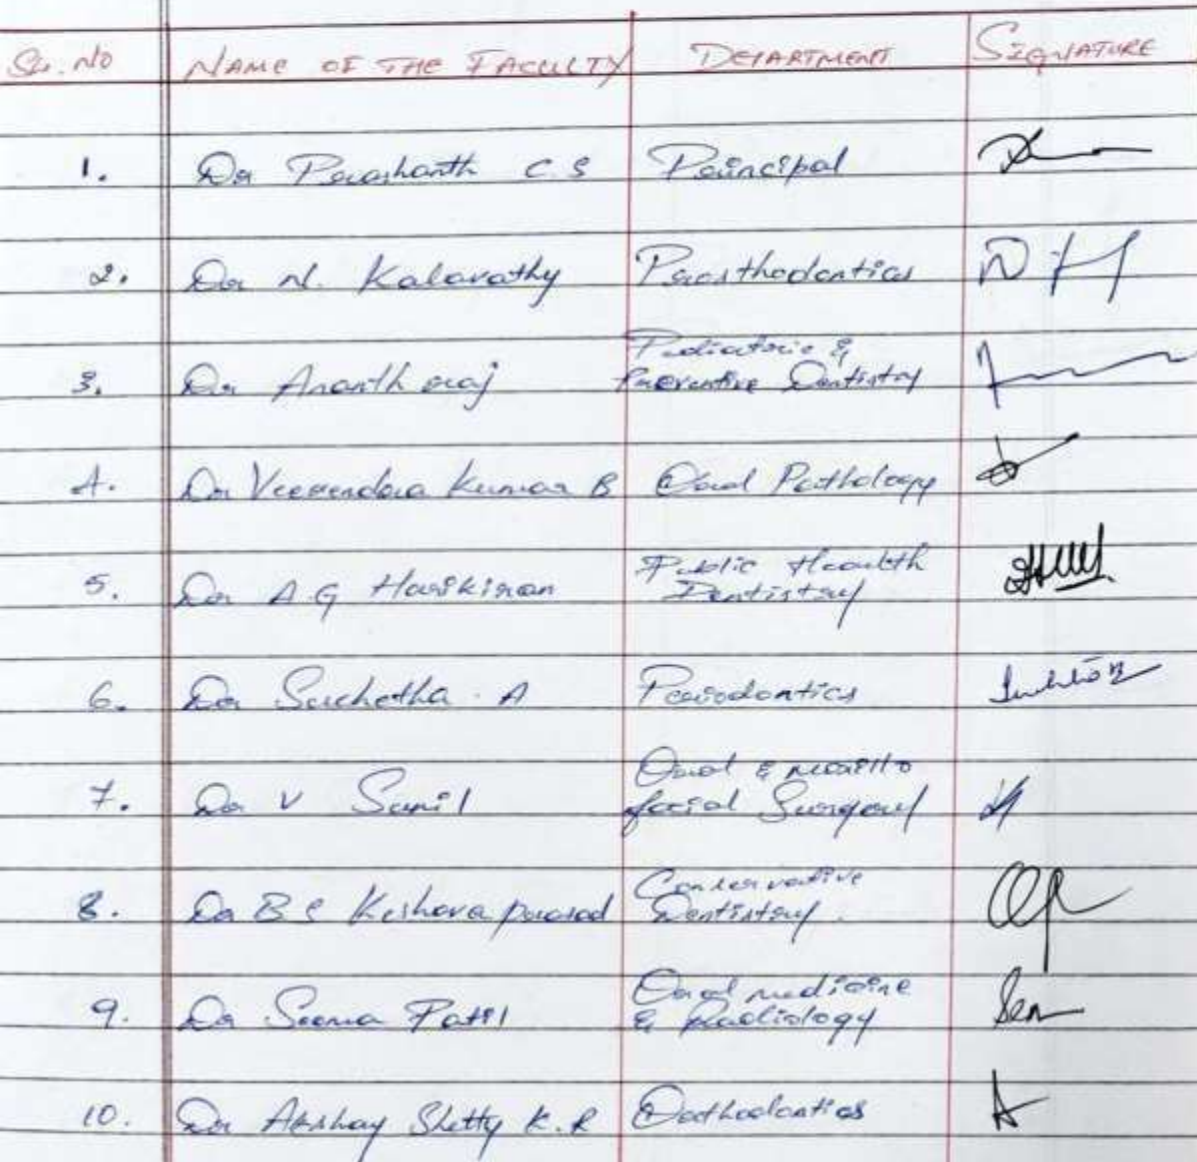 Sr. No NAME OF THE FACULTY DEPARTMENT SIGNATURE
1. Dr Prashanth C S Principal
2. Dr N. Kalavathy Prosthodontics
3. Dr Ananth raj Pediatric & Preventive Dentistry
4. Dr Veerendra Kumar B Oral Pathology
5. Dr A G Harikiran Public Health Dentistry
6. Dr Suchetha. A Periodontics
7. Dr V Sunil Oral & maxillo facial Surgery
8. Dr B S Keshava prasad Conservative Dentistry.
9. Dr Seema Patil Oral medicine & Radiology
10. Dr Akshay Shetty K. R Orthodontics